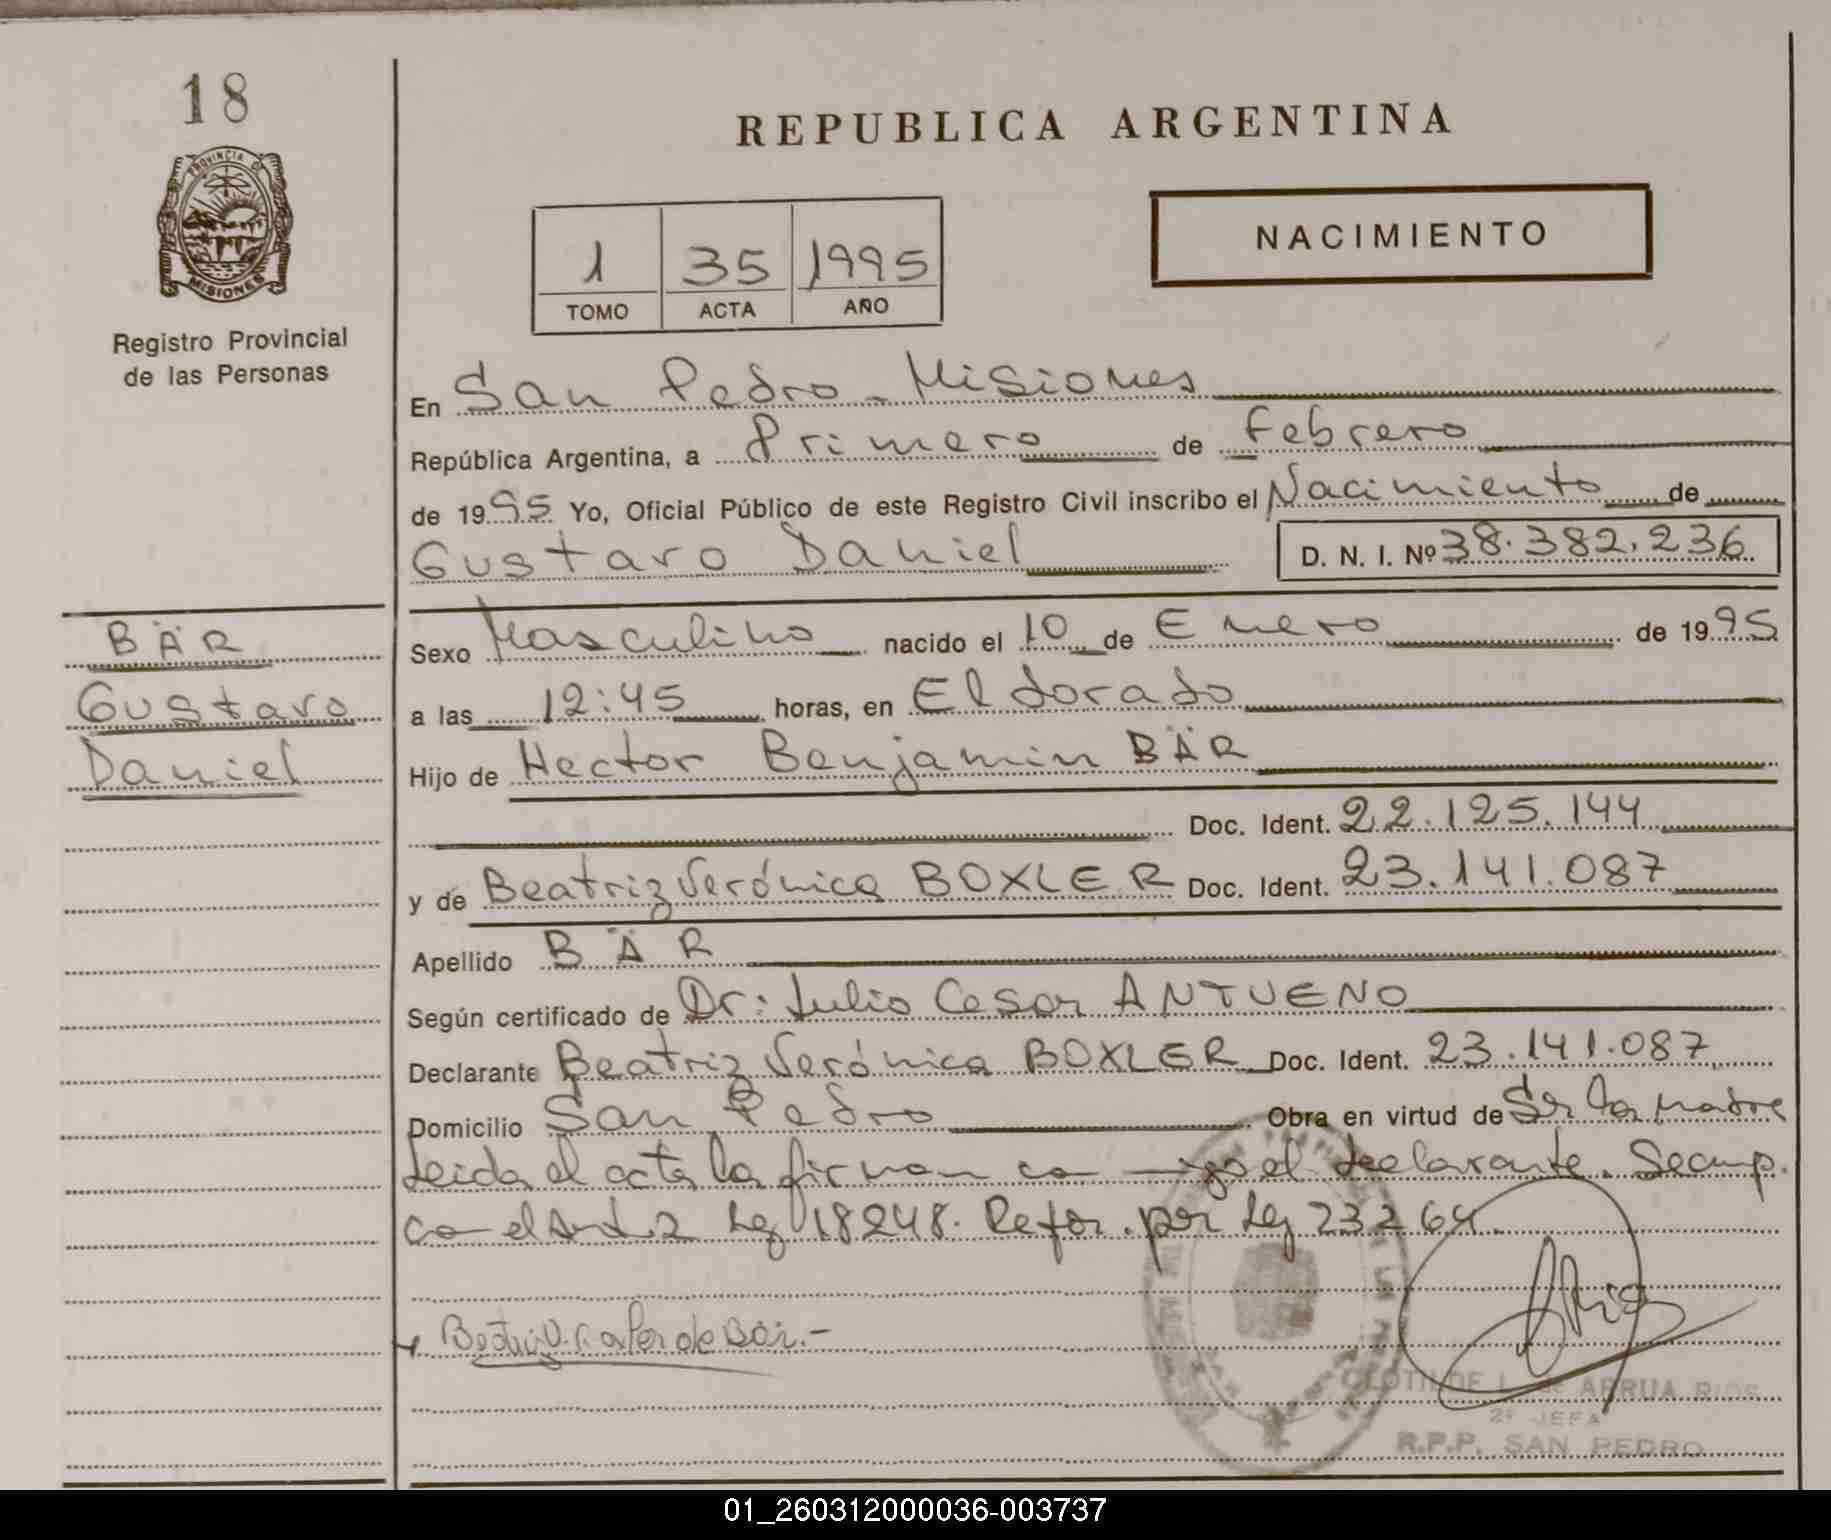 18
PROVINCIA DE
MISIONES
Registro Provincial
de las Personas
REPUBLICA ARGENTINA
1 35 1995
TOMO ACTA AÑO
NACIMIENTO
En San Pedro - Misiones
República Argentina, a Primero de Febrero
de 1995 Yo, Oficial Público de este Registro Civil inscribo el Nacimiento de
Gustavo Daniel D. N. I. Nº 38.382.236
BÄR
Gustavo
Daniel
Sexo Masculino nacido el 10 de Enero de 1995
a las 12:45 horas, en Eldorado
Hijo de Hector Benjamin BÄR
Doc. Ident. 22.125.144
y de Beatriz Verónica BOXLER Doc. Ident. 23.141.087
Apellido BÄR
Según certificado de Dr: Julio Cesar ANTUENO
Declarante Beatriz Verónica BOXLER Doc. Ident. 23.141.087
Domicilio San Pedro Obra en virtud de Ser la madre
Leida el acta la firman conmigo el declarante. Se cump.
con el Art 2 Ley 18248. Refor. por Ley 23264.
CLOTILDE L. de ARRUA RIOS
2º JEFA
R.P.P. SAN PEDRO
01_260312000036-003737